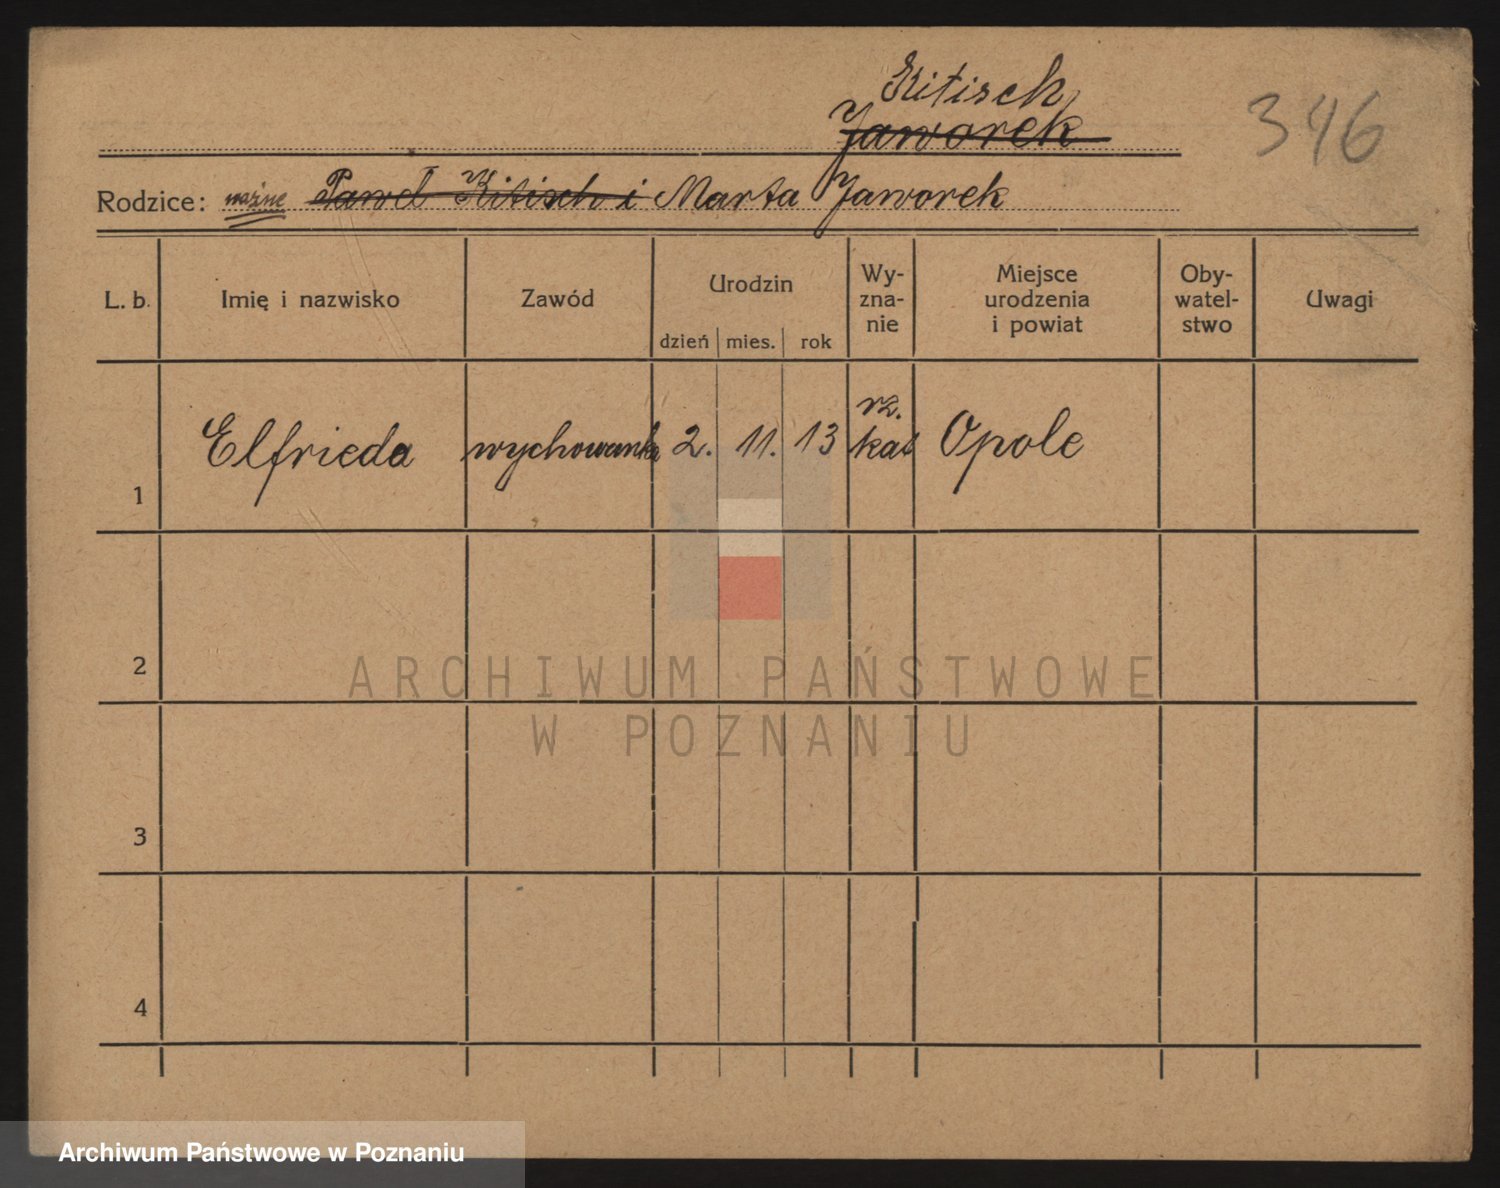 Kitisch
Jaworek
346
Rodzice: ważne Paweł Kitisch i Marta Jaworek
L. b. Imię i nazwisko Zawód Urodzin Wy-zna-nie Miejsce urodzenia i powiat Oby-watel-stwo Uwagi
dzień mies. rok
1 Elfrieda wychowanka 2. 11. 13 rz. kat Opole
2
ARCHIWUM PAŃSTWOWE
W POZNANIU
3
4
Archiwum Państwowe w Poznaniu